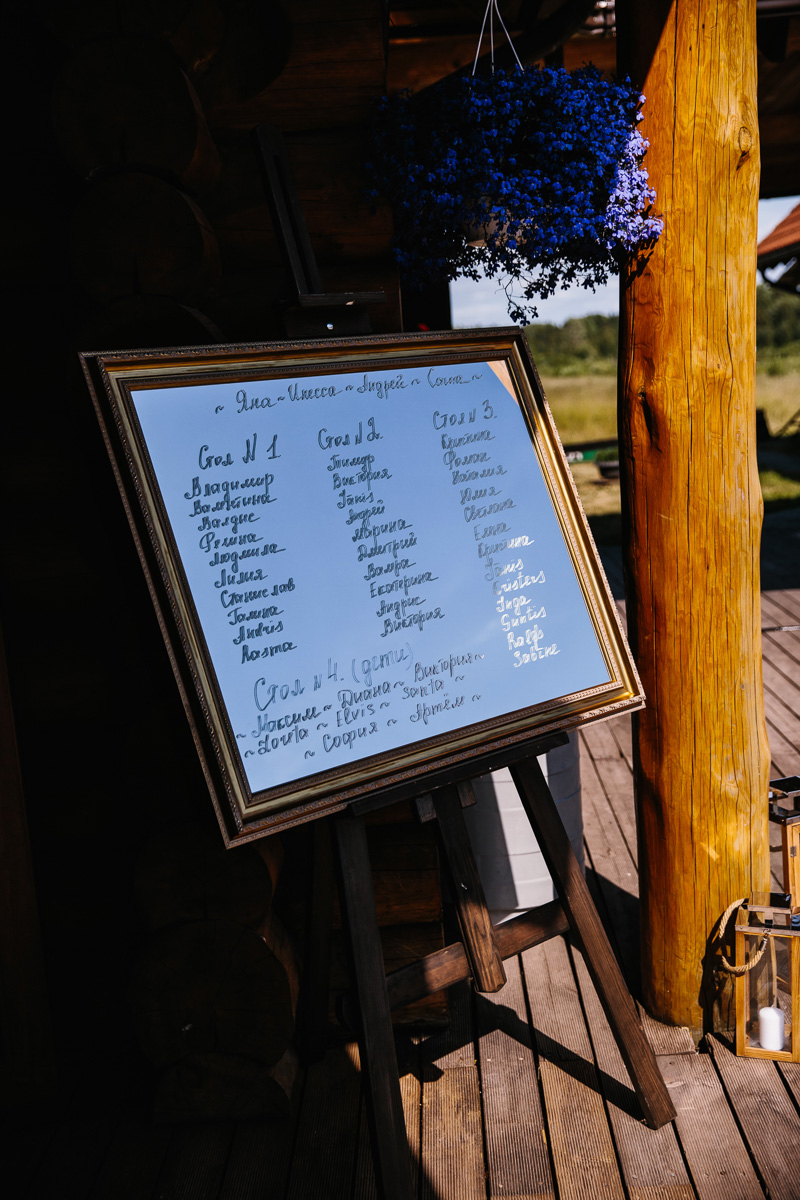 ~ Яна ~ Инесса ~ Андрей ~ Сонна ~
Стол N 1
Владимир
Валентина
Валдис
Рялина
Людмила
Лилия
Станислав
Галина
Andris
Rasma
Стол N 2.
Тимур
Виктория
Jānis
Андрей
Марина
Дмитрий
Валра
Екатерина
Андрис
Виктория
Стол N 3.
Кристина
Роман
Наталия
Юлия
Светлана
Елена
Кристина
Jānis
Kristers
Inga
Guntis
Ralfs
Sabīne
Стол N 4. (дети)
~ Максим ~ Диана ~ Виктория ~
~ Loreta ~ Elvis ~ Santa ~
~ София ~ Артём ~